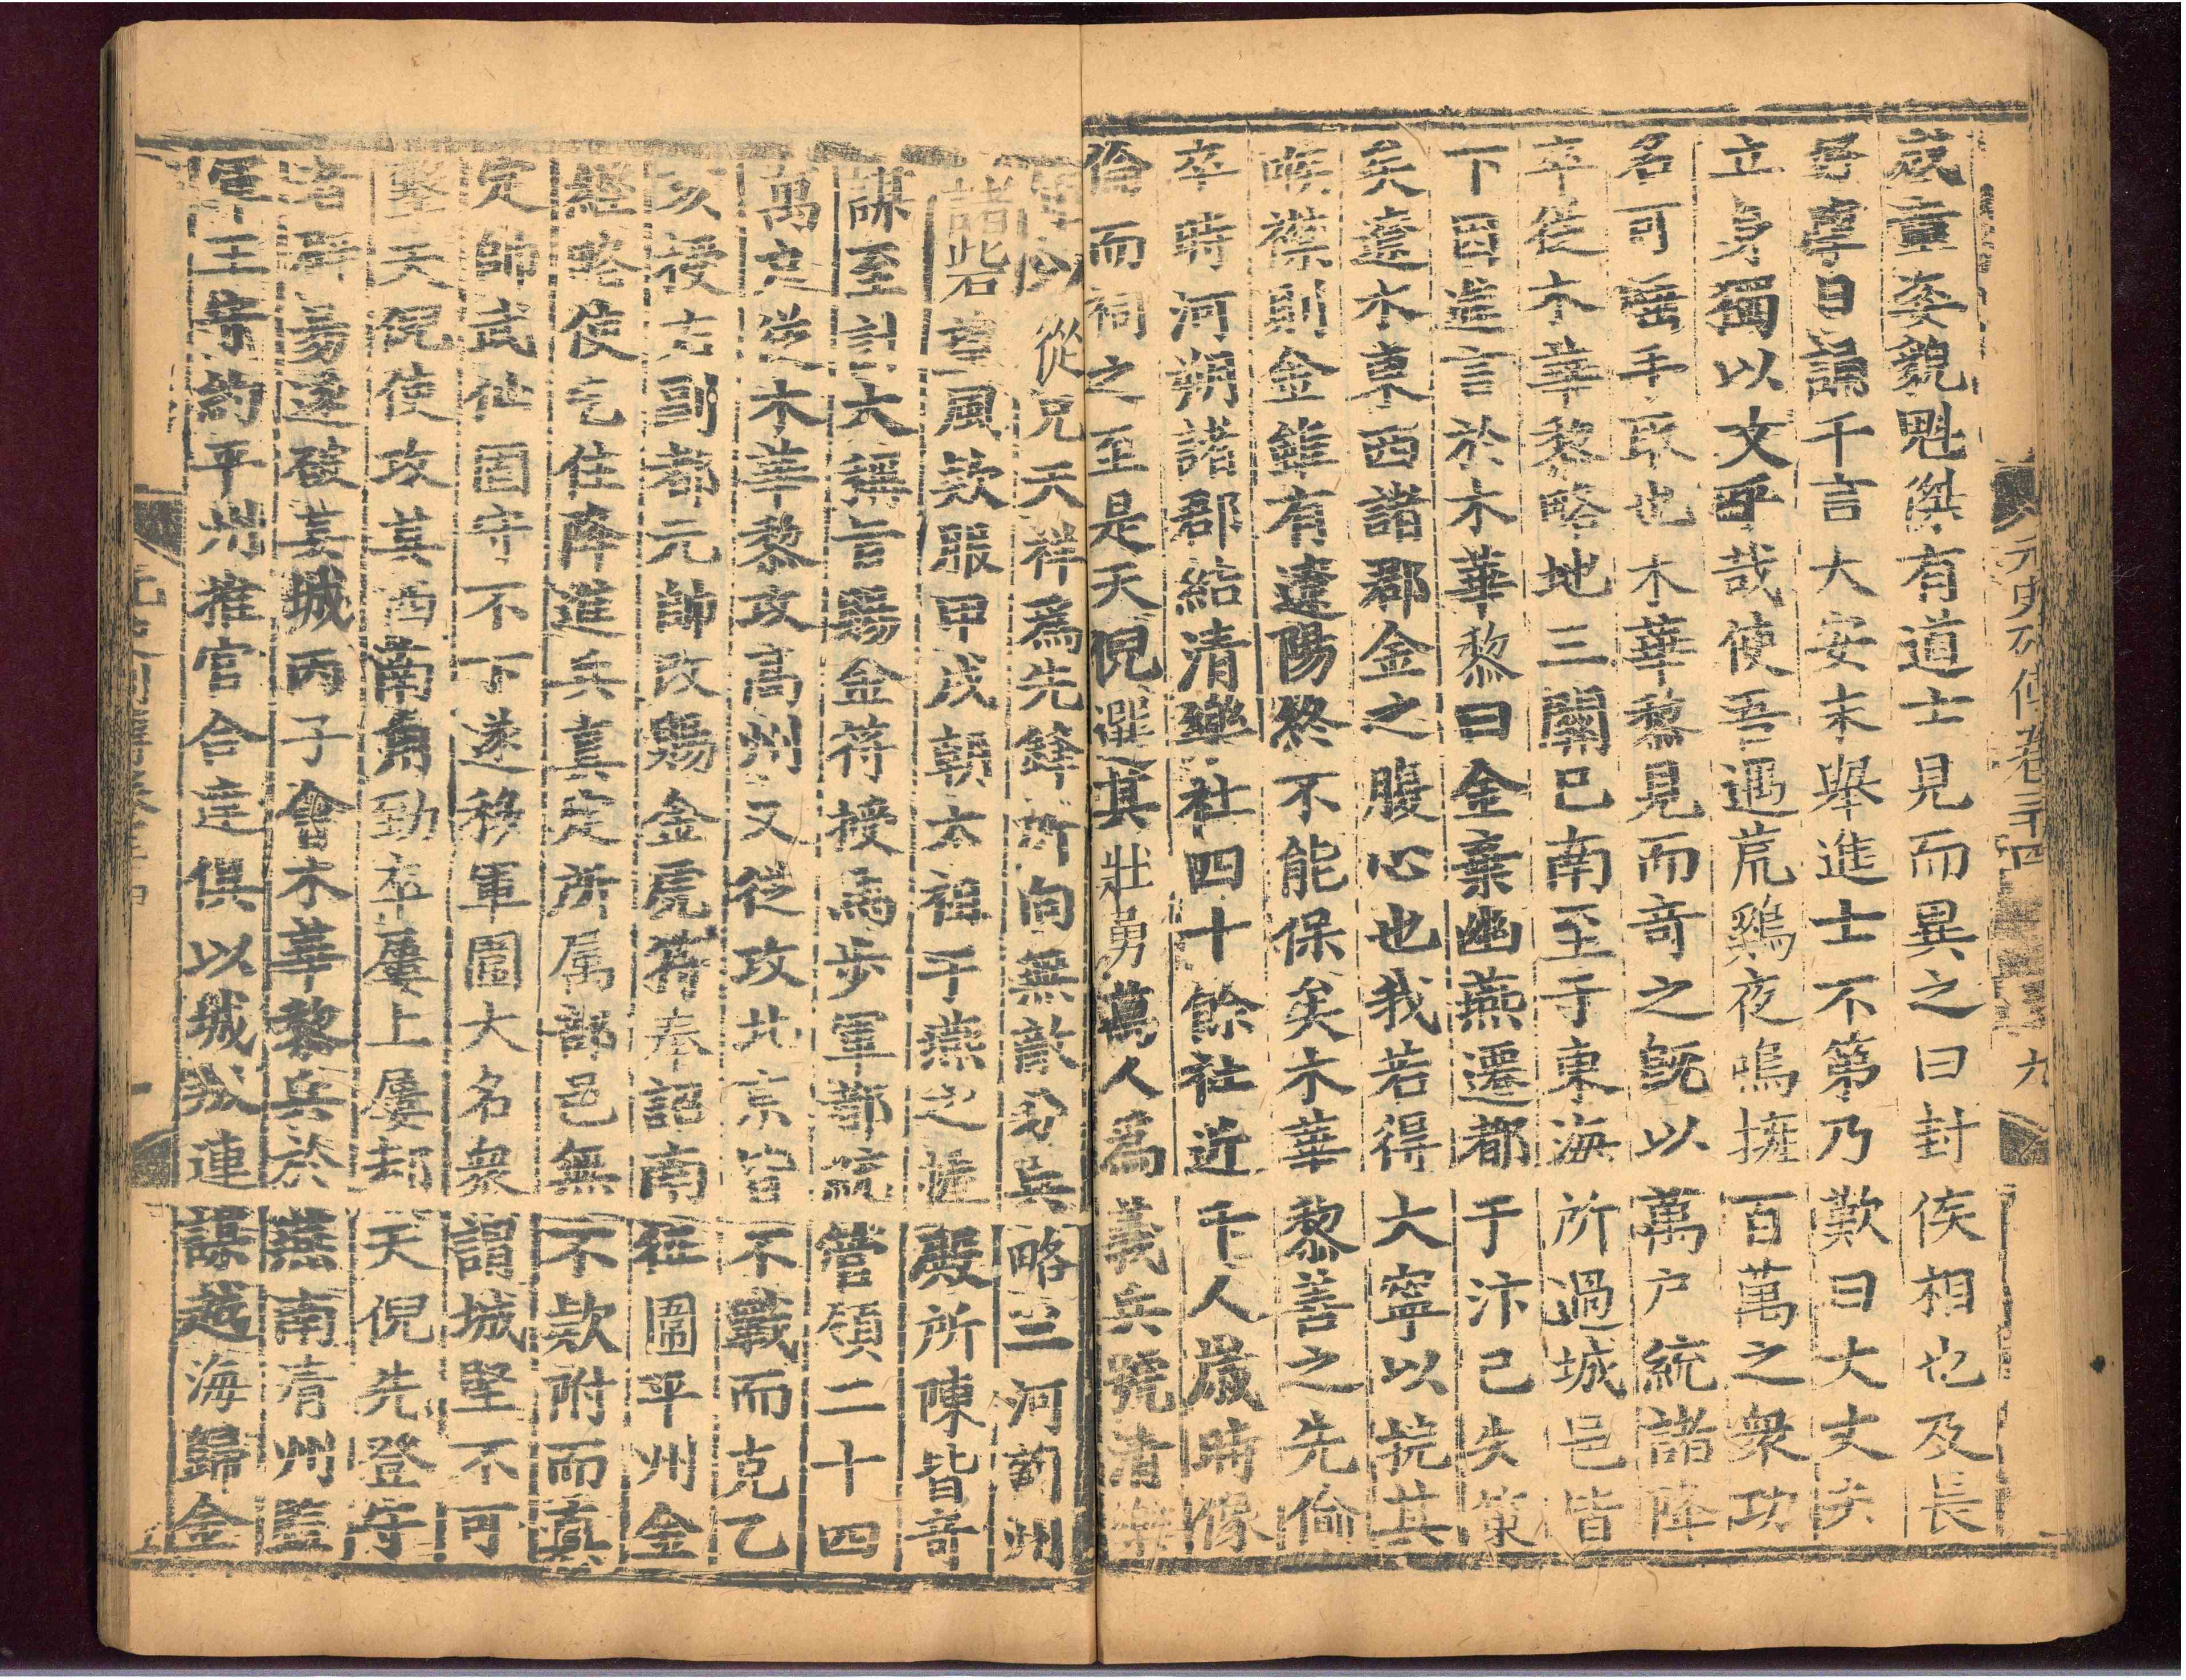 元史列傳卷三十四 九
歲童姿貌魁傑有道士見而異之曰封侯相也及長
好學日誦千言大安末舉進士不第乃歎曰大丈夫
立身獨以文乎哉使吾遇荒鷄夜鳴擁百萬之衆功
名可唾手取也木華黎見而奇之既以萬户統諸降
卒從木華黎略地三關已南至于東海所過城邑皆
下因進言於木華黎曰金棄幽燕遷都于汴已失策
矣遼水東西諸郡金之腹心也我若得大寧以扼其
喉襟則金雖有遼陽終不能保矣木華黎善之先倫
卒時河朔諸郡結清樂社四十餘社近千人歲時像
倫而祠之至是天倪選其壯勇萬人爲義兵號清樂
軍以從兄天祥爲先鋒所向無敵分兵略三河薊州
諸砦望風欵服甲戌朝太祖于燕之 殿所陳皆奇
謀至計大稱旨賜金符授馬步軍都統管領二十四
萬户從木華黎攻高州又從攻北京皆不戰而克乙
亥授右副都元帥改賜金虎符奉詔南征圍平州金
經略使乞住降進兵真定所属部邑無不欵附而真
定帥武仙固守不下遂移軍圍大名衆謂城堅不可
擊天倪使攻其西南角勁卒屢上屢却天倪先登守
者辟易遂破其城丙子會木華黎兵於燕南清州監
軍王守約平州推官合達俱以城叛連謀越海歸金
元史列傳卷三十四